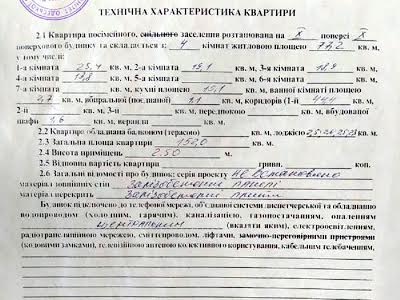 ТЕХНІЧНА ХАРАКТЕРИСТИКА КВАРТИРИ
2.1 Квартира посімейного, спільного заселення розташована на X поверсі X
поверхового будинку та складається з: 4 кімнат житловою площею 77,2 кв. м,
у тому числі:
1-а кімната 25,4 кв. м, 2-а кімната 15,1 кв. м, 3-я кімната 18,9 кв. м,
4-а кімната 17,8 кв. м, 5-а кімната кв. м, 6-я кімната кв. м,
7-а кімната кв. м, кухні площею 15,1 кв. м, ванної кімнати площею
2,7 кв. м, вбиральної (поєднаної) 1,1 кв. м, коридорів (1-й 44,1 кв. м,
2-й кв. м, 3-й кв. м), передпокою кв. м, вбудованої
шафи 1,6 кв. м, веранди кв. м.
2.2 Квартира обладнана балконом (терасою) кв. м, лоджією кв. м.
2.3 Загальна площа квартири 152,0 кв. м.
2.4 Висота приміщень 2.50 м.
2.5 Відновна вартість квартири гривн. коп.
2.6 Загальні відомості про будинок: серія проекту не встановлено
матеріал зовнішніх стін залізобетонні панелі
матеріал перекрить залізобетонні плити
Будинок підключено до телефонної мережі, об'єднаної системи диспетчерської та обладнано
водопроводом (холодним, гарячим), каналізацією, газопостачанням, опаленням
центральним (вказати яким), електроосвітленням,
радіотрансляційною мережею, сміттєпроводом, ліфтами, замочно-переговорними пристроями
(кодовими замками), телевізійною антеною колективного користування, кабельним телебаченням,